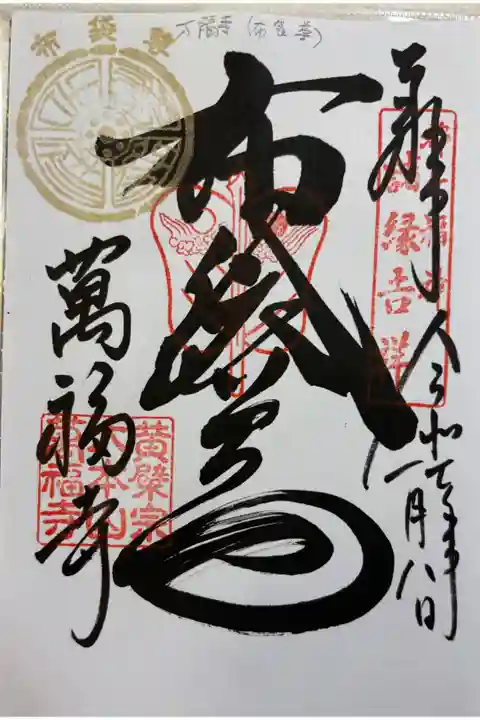 万福寺(布袋尊)
布袋尊
奉拝 令和七年
一月八日
諸縁吉祥
布袋尊
萬福寺
黄檗宗
大本山
萬福寺